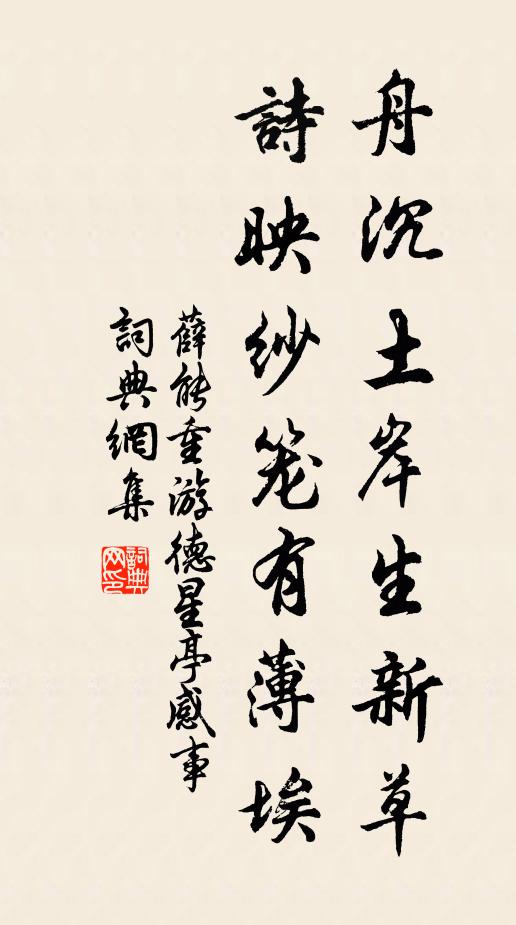 舟沉土岸生新草
詩映纱笼有薄埃
薛能重游德星亭感事
詞典網集
詞典网印